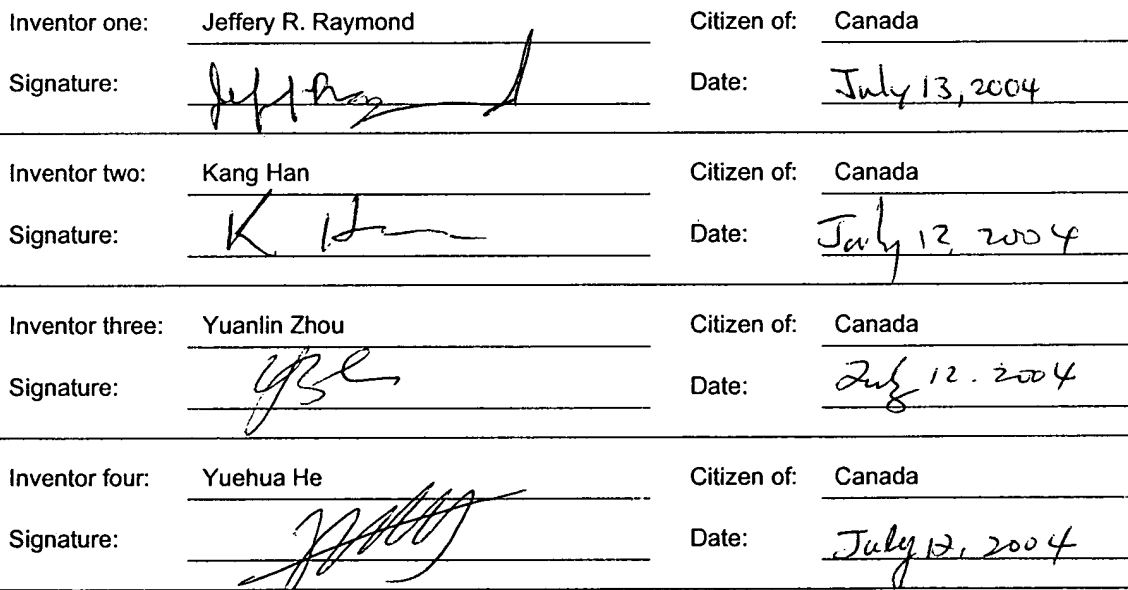 Inventor one: Jeffery R. Raymond Citizen of: Canada
Signature: Jeff Ray Date: July 13, 2004
Inventor two: Kang Han Citizen of: Canada
Signature: K. H Date: July 12, 2004
Inventor three: Yuanlin Zhou Citizen of: Canada
Signature: Date: July 12. 2004
Inventor four: Yuehua He Citizen of: Canada
Signature: Date: July 12, 2004